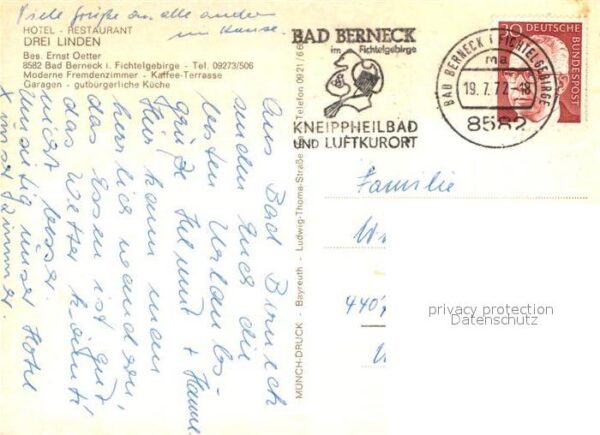 Viele Grüße an alle anderen
im Hause.
HOTEL - RESTAURANT
DREI LINDEN
Bes. Ernst Oetter
8582 Bad Berneck i. Fichtelgebirge - Tel. 09273/506
Moderne Fremdenzimmer - Kaffee-Terrasse
Garagen - gutbürgerliche Küche
Aus Bad Berneck
senden Euch die
besten Urlaubs-
grüße Helmut + Hanne.
Hier kann man
herrlich wandern,
das Essen ist gut,
das Wetter könnte
nicht besser.
unser Hotel
x unser Zimmer.
MÜNCH-DRUCK - Bayreuth - Ludwig-Thoma-Straße - Telefon 0921/66
BAD BERNECK
im Fichtelgebirge
KNEIPPHEILBAD
UND LUFTKURORT
BAD BERNECK I FICHTELGEBIRGE
ma
19.7.72-18
8582
30
DEUTSCHE
BUNDESPOST
Familie
W
440
privacy protection
Datenschutz